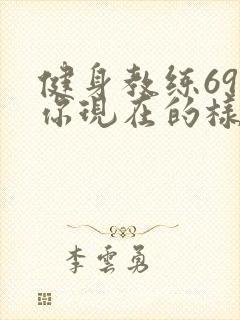 健身教练69
你现在的樣
李雲勇